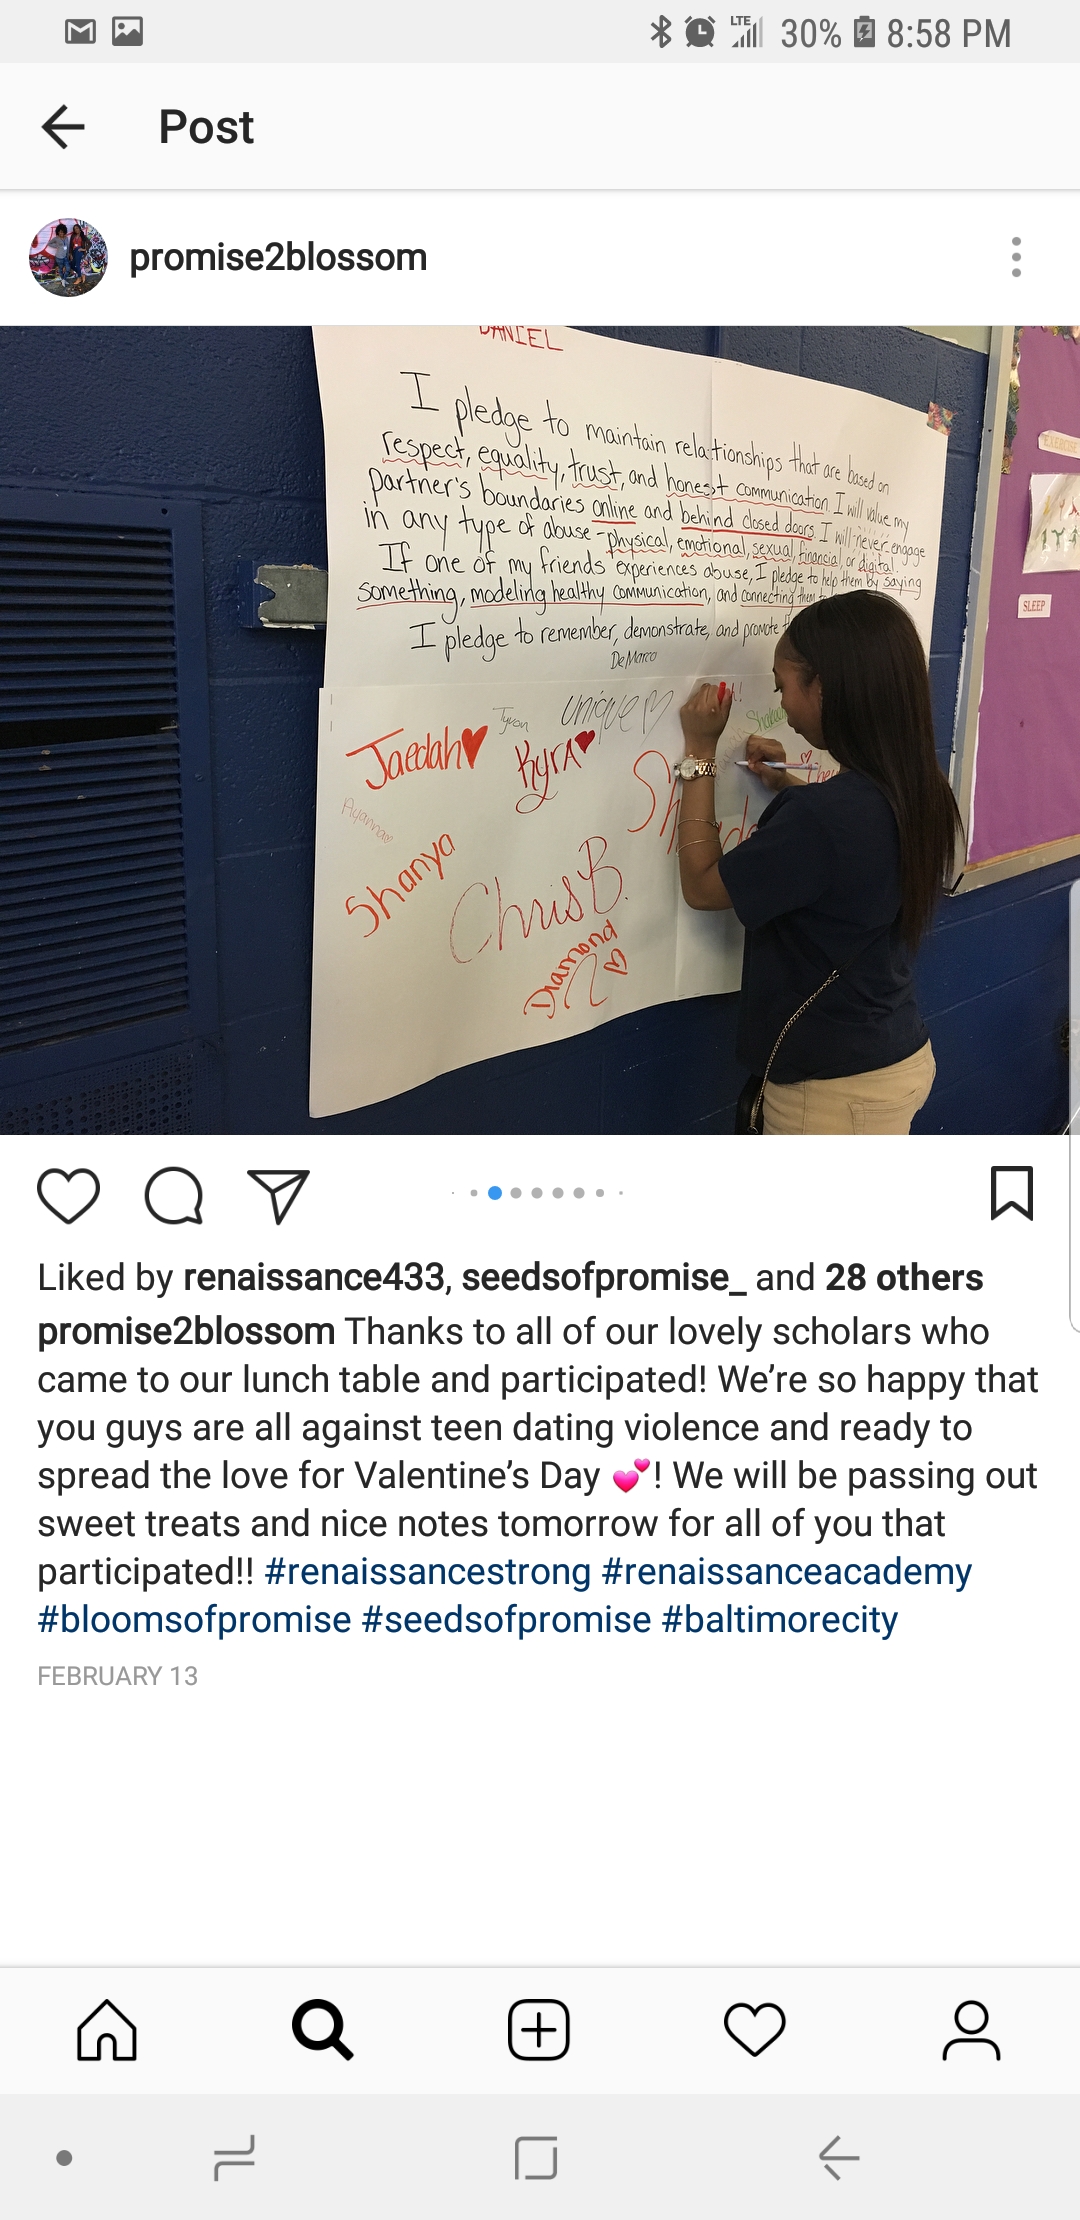 LTE 30% 8:58 PM
Post
promise2blossom
DANIEL
I pledge to maintain relationships that are based on
respect, equality, trust, and honest communication. I will value my
partner's boundaries online and behind closed doors. I will never engage
in any type of abuse - physical, emotional, sexual, financial, or digital.
If one of my friends experiences abuse, I pledge to help them by saying
something, modeling healthy communication, and connecting them
I pledge to remember, demonstrate, and promote
DeMarco
Tyvon
unique
Jaedah
KyrA
Ayanna
Shanya
Chris B.
Diamond
EXERCISE
SLEEP
Liked by renaissance433, seedsofpromise_ and 28 others
promise2blossom Thanks to all of our lovely scholars who
came to our lunch table and participated! We’re so happy that
you guys are all against teen dating violence and ready to
spread the love for Valentine’s Day 💕! We will be passing out
sweet treats and nice notes tomorrow for all of you that
participated!! #renaissancestrong #renaissanceacademy
#bloomsofpromise #seedsofpromise #baltimorecity
FEBRUARY 13